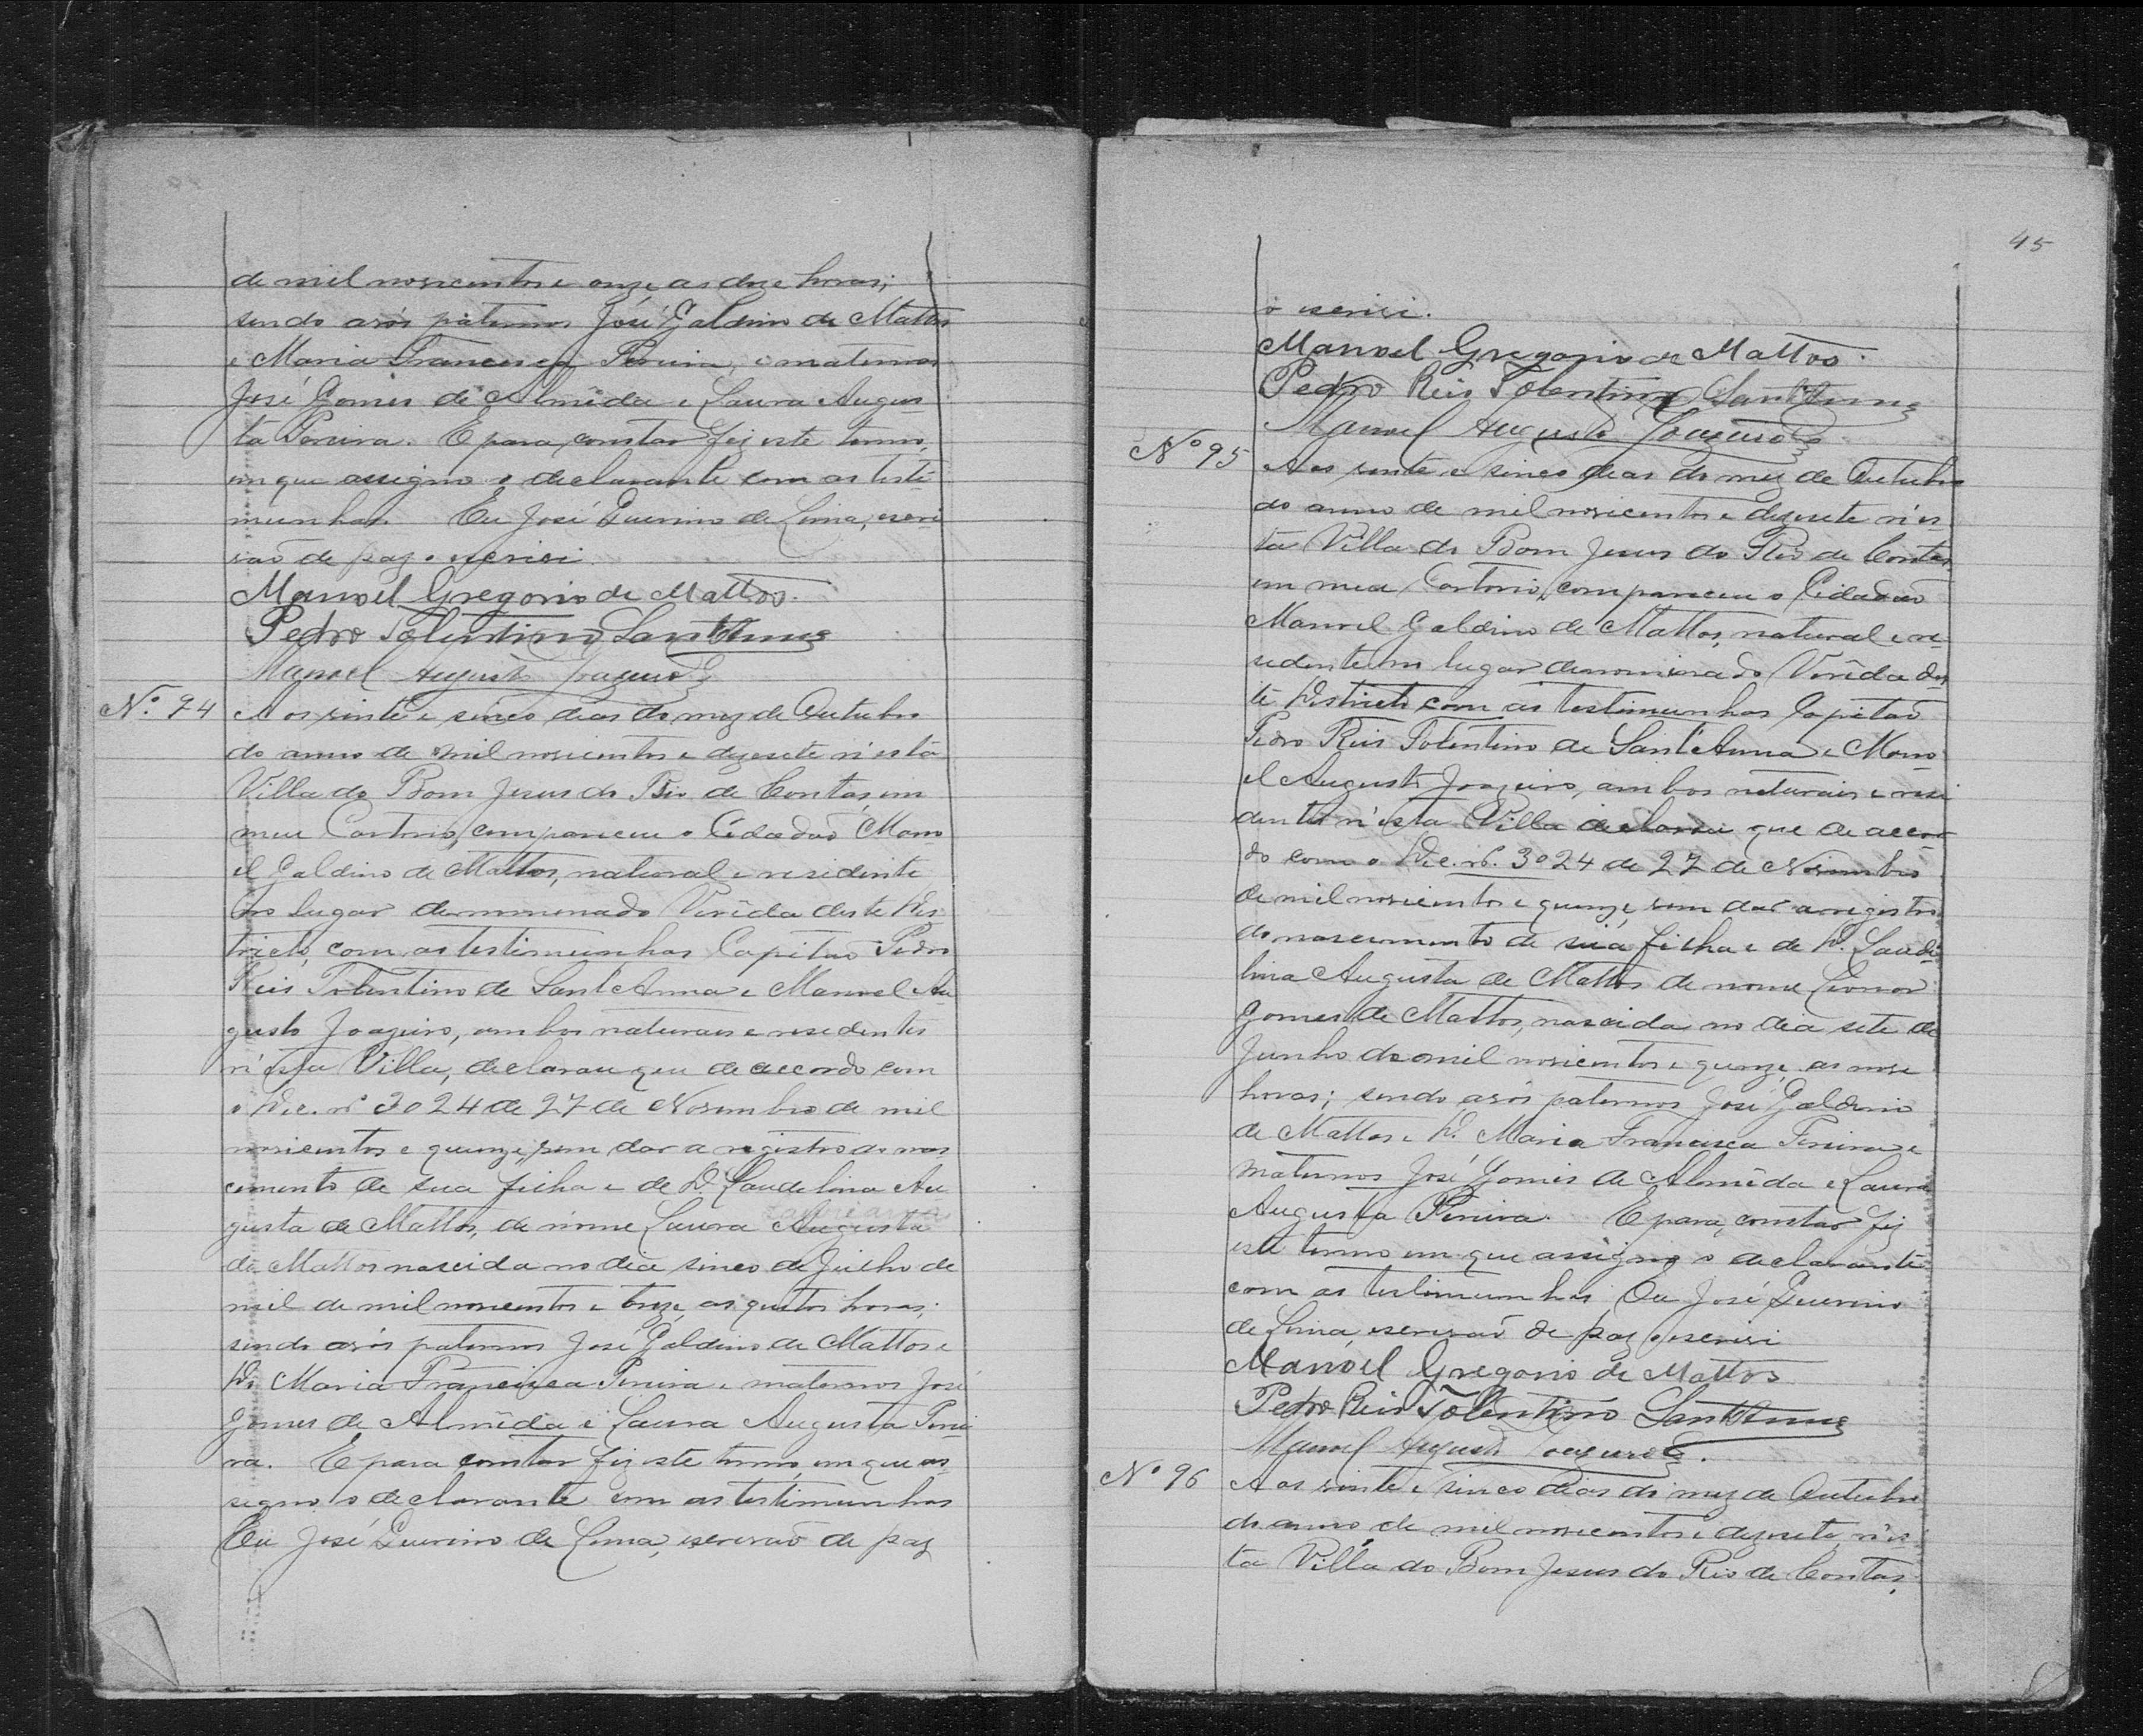 de mil novicentos e onze as doze horas;
sendo avós paternos José Galdino de Mattos
e Maria Francisca Pereira, e maternos
José Gomes de Almêida e Laura Augus
ta Pereira. E para constar fiz este termo,
em que assigno o declarante com as teste
munhas. Eu José Guerino de Lima, escri
vaõ de paz o escrivi.
Manoel Gregorio de Mattos.
Pedro Tolentino SantAnna
Manoel Augusto Joazeiro
Nº. 94 Aos vinte e sinco dias do mez de Outubro
do anno de mil novicentos e dezesete n'esta
Villa do Bom Jesus do Rio de Contas, em
meu Cartorio, compareceu o Cidadaõ Mano
el Galdino de Mattos, natural e residente
no lugar denominado Verêda deste Dis
tricto, com as testimunhas Capitaõ Pedro
Reis Tolentino de Sant'Anna e Manoel Au
gusto Joazeiro, ambos naturais e residentes
n'esta Villa, declarau que de accordo com
o Dec. nº 3024 de 27 de Novembro de mil
novicentos e quinze, vem dar a registro o nas
cimento de sua filha e de D. Laudelina Au
gusta de Mattos, de nome Laura Augusta
de Mattos nascida no dia sinco de Julho de
mil de mil novicentos e treze, as quatro horas;
sendo avós paternos José Galdino de Mattos e
D. Maria Francisca Pereira e maternos José
Gomes de Almêida e Laura Augusta Perei
ra. E para constar fiz este termo, em que as
signo o declarante com as testimunhas
Eu José Guerino de Lima, escrivaõ de paz
45
o escrivi.
Manoel Gregorio de Mattos.
Pedro Reis Tolentino SantAnna
Manoel Augusto Joazeiro
Nº 95 Aos vinte e sinco dias do mez de Outubro
do anno de mil novicentos e dezesete n'es
ta Villa do Bom Jesus do Rio de Contas
em meu Cartorio, compareceu o Cidadaõ
Manoel Galdino de Mattos, natural e re
sidente no lugar denominado Verêda des
te Districto com as testimunhas Capitaõ
Pedro Reis Tolentino de Sant'Anna e Mano
el Augusto Joazeiro, ambos naturais e resi
dentes n'esta Villa declarau que de accor
do com o Dec. nº. 3024 de 27 de Novembro
de mil novicentos e quinze, vem dar a registro
o nascimento de sua filha e de D. Laude
lina Augusta de Mattos de nome Leonor
Gomes de Mattos, nascida no dia sete de
Junho de mil novicentos e quinze, as nove
horas; sendo avós paternos José Galdino
de Mattos e D. Maria Francisca Pereira e
maternos José Gomes de Almêida e Laura
Augusta Pereira. E para constar fiz
este termo em que assigno o declarante
com as testimunhas Eu José Guerino
de Lima, escrivaõ de paz o escrivi
Manoel Gregorio de Mattos
Pedro Reis Tolentino SantAnna
Manoel Augusto Joazeiro.
Nº 96 Aos vinte e sinco dias do mez de Outubro
do anno de mil novicentos e dezesete, n'es
ta Villa do Bom Jesus do Rio de Contas,